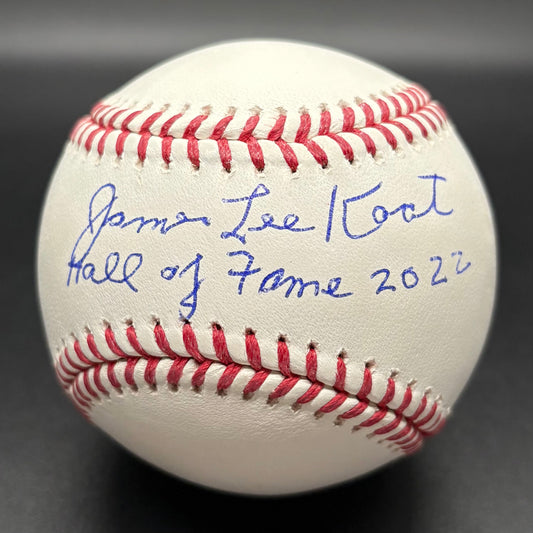 James Lee Kaat
Hall of Fame 2022